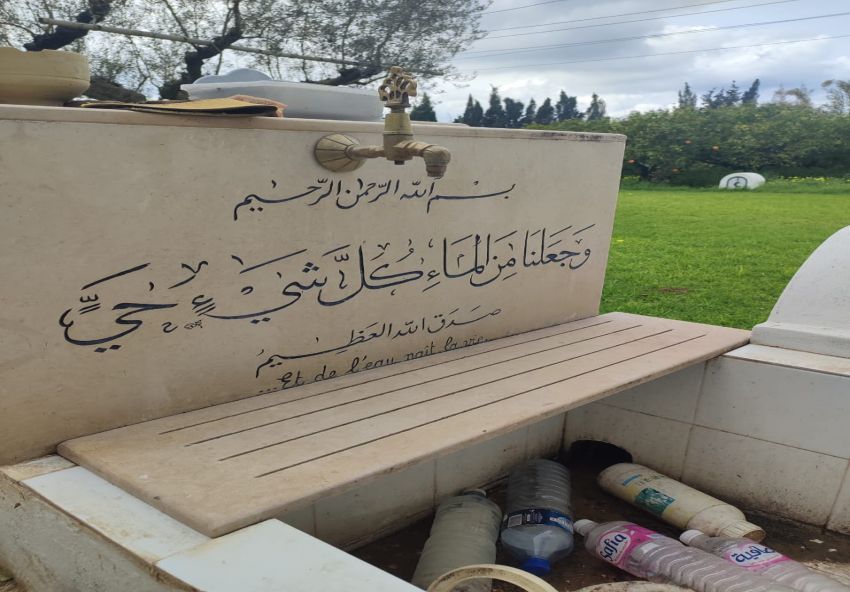 بسم الله الرّحمٰن الرّحيم
وَجَعَلنَا مِنَ المَاءِ كُلَّ شَيْءٍ حَيٍّ
صَدَقَ اللّه العَظِيمُ
...Et de l'eau nait la vie.
Safia
صافية